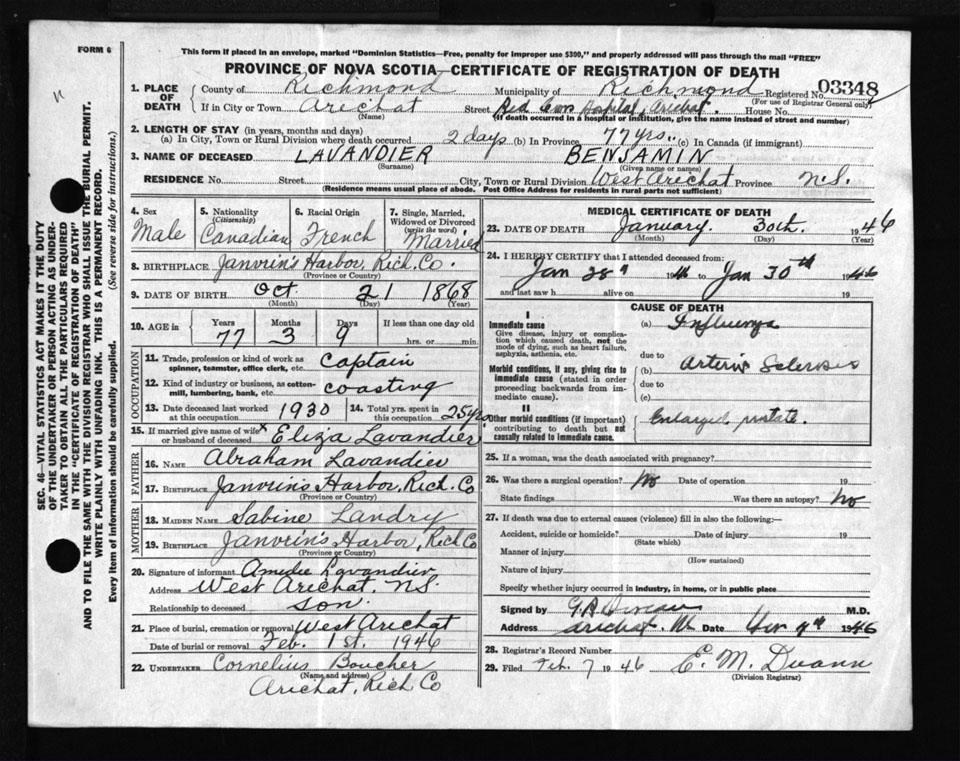 FORM 6
This form if placed in an envelope, marked "Dominion Statistics—Free, penalty for improper use $300," and properly addressed will pass through the mail "FREE"
PROVINCE OF NOVA SCOTIA—CERTIFICATE OF REGISTRATION OF DEATH
1. PLACE OF DEATH
County of Richmond Municipality of Richmond Registered No. 03348
(For use of Registrar General only)
If in City or Town Arichat Street Red Cross Hospital, Arichat. House No.
(Name) (If death occurred in a hospital or institution, give the name instead of street and number)
2. LENGTH OF STAY (in years, months and days)
(a) In City, Town or Rural Division where death occurred 2 days (b) In Province 77 yrs. (c) In Canada (if immigrant)
3. NAME OF DECEASED LAVANDIER BENJAMIN
(Surname) (Given name or names)
RESIDENCE No. Street City, Town or Rural Division West Arichat Province N.S.
(Residence means usual place of abode. Post Office Address for residents in rural parts not sufficient)
4. Sex Male
5. Nationality (Citizenship) Canadian
6. Racial Origin French
7. Single, Married, Widowed or Divorced (write the word) Married
8. BIRTHPLACE Janvrin's Harbor, Rich. Co.
(Province or Country)
9. DATE OF BIRTH Oct 21 1868
(Month) (Day) (Year)
10. AGE in Years Months Days If less than one day old
77 3 9 hrs. or min.
OCCUPATION
11. Trade, profession or kind of work as spinner, teamster, office clerk, etc. Captain
12. Kind of industry or business, as cotton-mill, lumbering, bank, etc. coasting
13. Date deceased last worked at this occupation 1930
14. Total yrs. spent in this occupation 25 yrs
15. If married give name of wife or husband of deceased Eliza Lavandier
FATHER
16. NAME Abraham Lavandier
17. BIRTHPLACE Janvrin's Harbor, Rich. Co
(Province or Country)
MOTHER
18. MAIDEN NAME Sabine Landry
19. BIRTHPLACE Janvrin's Harbor, Rich Co
(Province or Country)
20. Signature of informant Amedie Lavandier
Address West Arichat. N.S.
Relationship to deceased son.
21. Place of burial, cremation or removal West Arichat
Date of burial or removal Feb. 1st. 1946
22. UNDERTAKER Cornelius Boucher
(Name and address)
Arichat, Rich Co
MEDICAL CERTIFICATE OF DEATH
23. DATE OF DEATH January. 30th. 1946
(Month) (Day) (Year)
24. I HEREBY CERTIFY that I attended deceased from:
Jan 28th to Jan 30th 1946
and last saw h alive on 19
CAUSE OF DEATH
I
Immediate cause
Give disease, injury or complication which caused death, not the mode of dying, such as heart failure, asphyxia, asthenia, etc.
(a) Influenza
due to
Morbid conditions, if any, giving rise to immediate cause (stated in order proceeding backwards from immediate cause).
(b) Arterio Sclerosis
due to
(c)
II
Other morbid conditions (if important) contributing to death but not causally related to immediate cause.
Enlarged prostate.
25. If a woman, was the death associated with pregnancy?
26. Was there a surgical operation? No Date of operation 19
State findings Was there an autopsy? No
27. If death was due to external causes (violence) fill in also the following:—
Accident, suicide or homicide? Date of injury 19
(State which)
Manner of injury
(How sustained)
Nature of injury
Specify whether injury occurred in industry, in home, or in public place
Signed by M.D.
Address Arichat. Date 1946
28. Registrar's Record Number
29. Filed Feb. 7 1946 E. M. Doann
(Division Registrar)
SEC. 46—VITAL STATISTICS ACT MAKES IT THE DUTY
OF THE UNDERTAKER OR PERSON ACTING AS UNDER-
TAKER TO OBTAIN ALL THE PARTICULARS REQUIRED
IN THE "CERTIFICATE OF REGISTRATION OF DEATH"
AND TO FILE THE SAME WITH THE DIVISION REGISTRAR WHO SHALL ISSUE THE BURIAL PERMIT.
WRITE PLAINLY WITH UNFADING INK. THIS IS A PERMANENT RECORD.
Every item of information should be carefully supplied. (See reverse side for instructions.)